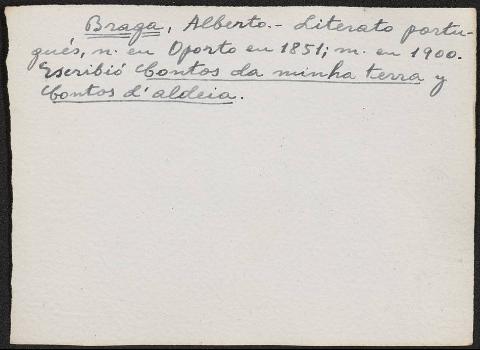 Braga, Alberto.- Literato portu-
gués, n. en Oporto en 1851; m. en 1900.
Escribió Contos da minha terra y
Contos d'aldeia.